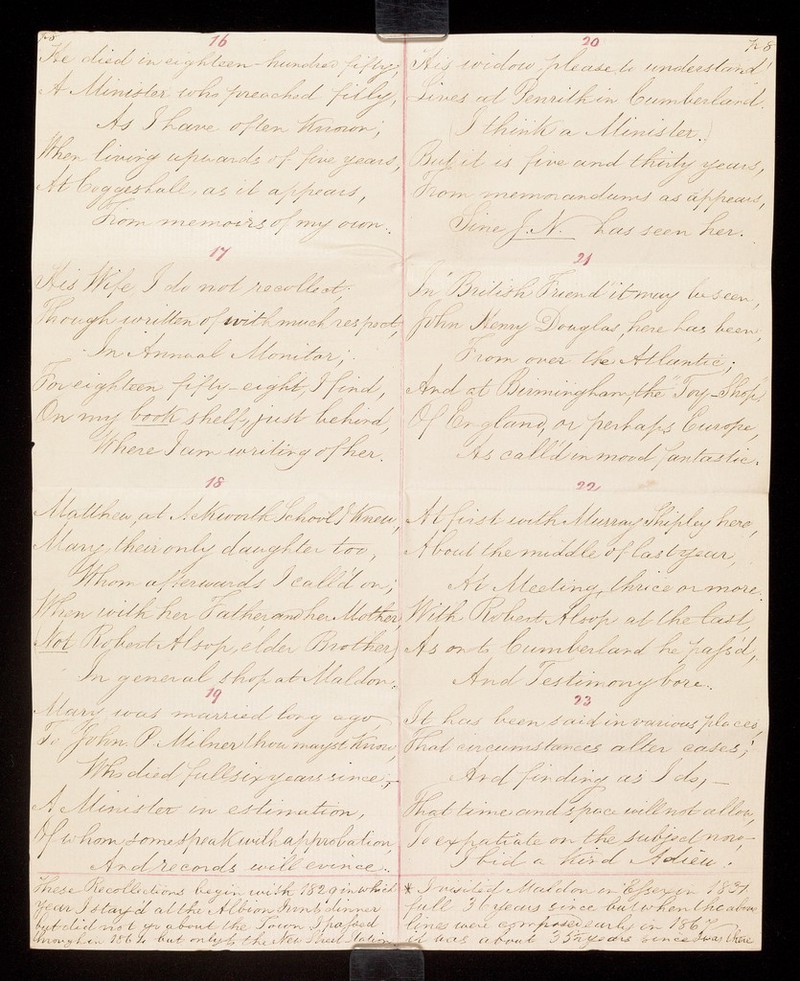 16
He died in eighteen-hundred fifty,
A Minister who preached fitly,
As I have often known;
When living upwards of five years,
At Coggeshall, as it appears,
From memoirs of my own.
17
His Wife I do not recollect,
Though written of with much respect,
In Annual Monitor;
For eighteen fifty-eight, I find,
On my book shelf, just behind,
Where I am writing of her.
18
Matthew, at Ackworth School I knew,
Mary, their only daughter too,
Whom afterwards I call'd on;
When with her Father and her Mother,
(Not Robert Alsop, elder Brother)
In general shop at Maldon.
19
Mary was married long ago
To John P. Milner thou mayst know,
Who died full six years since;
A Minister in estimation,
Of whom some speak with approbation,
And records will evince.
These Recollections begin with 1829 in which
year I stay'd at the Albion Inn to dinner
but did not go about the Town I passed
through in 1864 but only to the New Street Station
20
His widow, please to understand!
Lives at Penrith in Cumberland.
(I think a Minister.)
But it is five and thirty years,
From memorandums as appears,
Sine J. N. has seen her.
21
In "British Friend" it may be seen,
John Henry Douglas, here has been,
From over the Atlantic;
And at Birmingham, the "Toy-Shop",
Of England, or perhaps Europe,
As call'd in mood fantastic.
22
At first with Murray Shipley here,
About the middle of last year,
At Meeting, thrice or more.
With Robert Alsop at the last,
As on to Cumberland he pass'd,
And Testimony bore.
23
It has been said in various places,
That circumstances alter cases;
And finding as I do,—
That time and space will not allow,
To expatiate on the subject now—
I bid a kind Adieu.
* I visited Maldon in Essex in 1831
full 36 years since but when the above
lines were composed early in 1867
it was about 35½ years since I was there